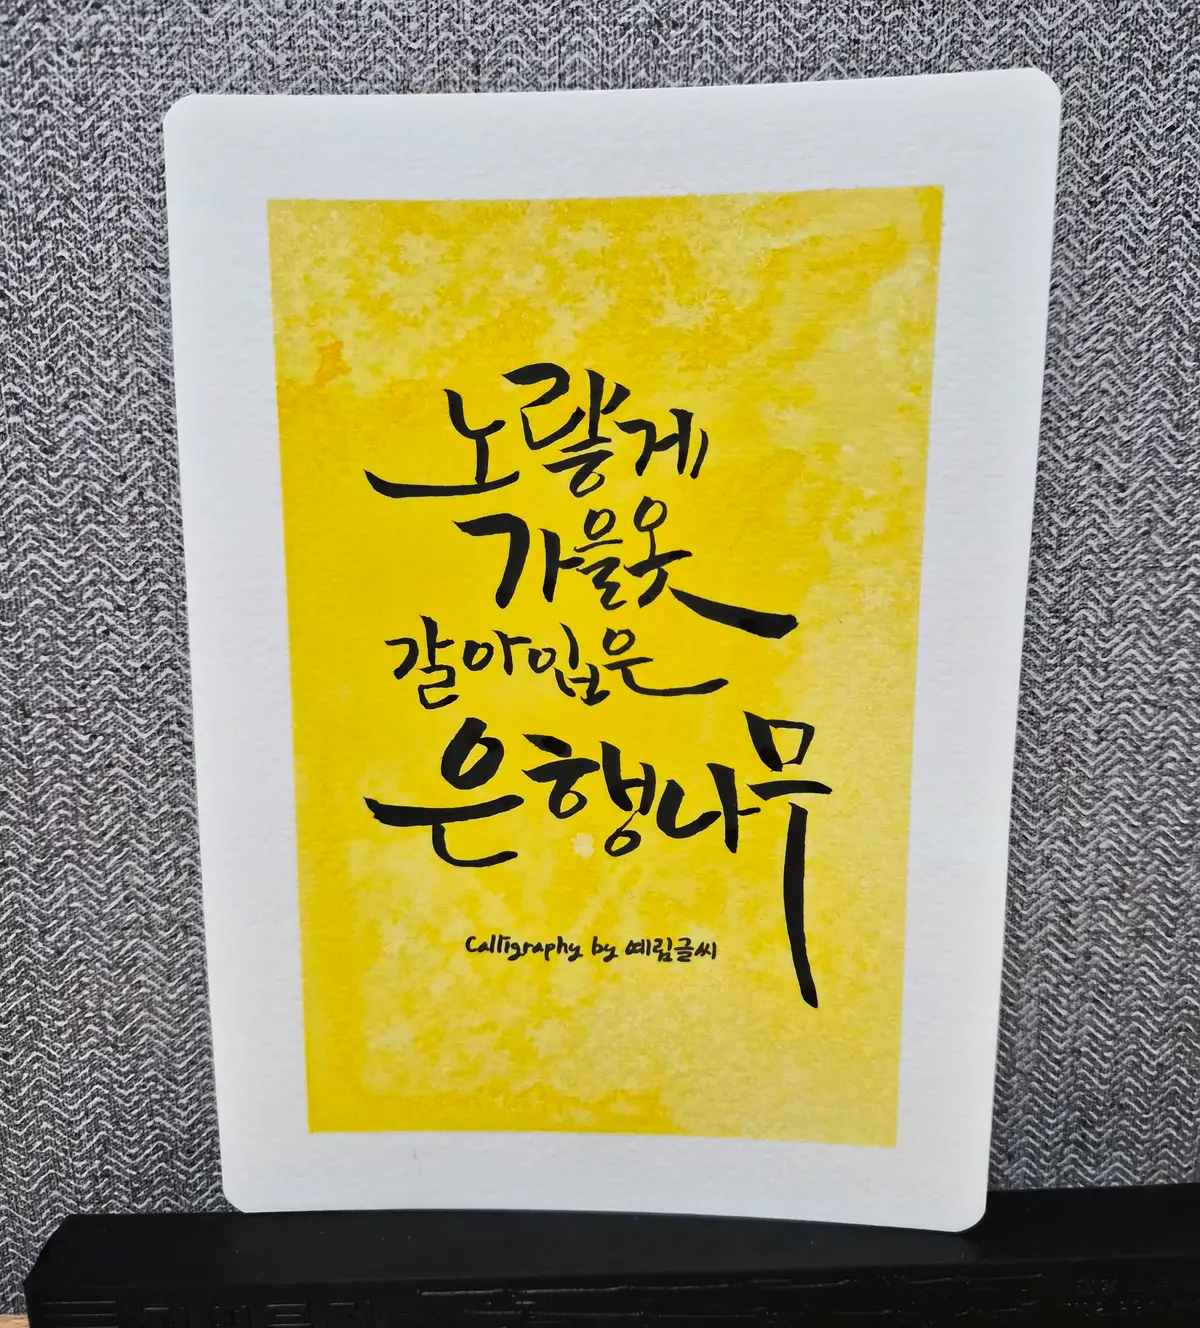 노랗게
가을옷
갈아입은
은행나무
Calligraphy by 예림글씨